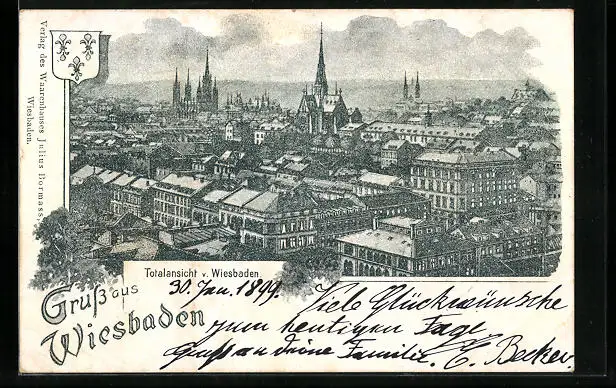 Verlag des Waarenhauses Julius Bormass,
Wiesbaden.
Totalansicht v. Wiesbaden.
Gruß aus
Wiesbaden
30. Jan. 1899.
Viele Glückwünsche
zum heutigen Tage
Gruss an deine Familie. E. Becker.